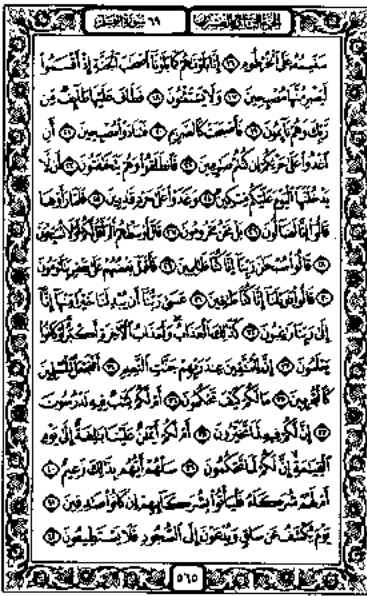 الجزء التاسع والعشرون سورة القلم
سَنَسِمُهُ عَلَى الْخُرْطُومِ ١٦ إِنَّا بَلَوْنَاهُمْ كَمَا بَلَوْنَا أَصْحَابَ الْجَنَّةِ إِذْ أَقْسَمُوا
لَيَصْرِمُنَّهَا مُصْبِحِينَ ١٧ وَلَا يَسْتَثْنُونَ ١٨ فَطَافَ عَلَيْهَا طَائِفٌ مِن
رَبِّكَ وَهُمْ نَائِمُونَ ١٩ فَأَصْبَحَتْ كَالصَّرِيمِ ٢٠ فَتَنَادَوْا مُصْبِحِينَ ٢١ أَنِ
اغْدُوا عَلَى حَرْثِكُمْ إِن كُنتُمْ صَارِمِينَ ٢٢ فَانطَلَقُوا وَهُمْ يَتَخَافَتُونَ ٢٣ أَن لَّا
يَدْخُلَنَّهَا الْيَوْمَ عَلَيْكُم مِّسْكِينٌ ٢٤ وَغَدَوْا عَلَى حَرْدٍ قَادِرِينَ ٢٥ فَلَمَّا رَأَوْهَا
قَالُوا إِنَّا لَضَالُّونَ ٢٦ بَلْ نَحْنُ مَحْرُومُونَ ٢٧ قَالَ أَوْسَطُهُمْ أَلَمْ أَقُل لَّكُمْ لَوْلَا تُسَبِّحُونَ
٢٨ قَالُوا سُبْحَانَ رَبِّنَا إِنَّا كُنَّا ظَالِمِينَ ٢٩ فَأَقْبَلَ بَعْضُهُمْ عَلَى بَعْضٍ يَتَلَاوَمُونَ
٣٠ قَالُوا يَاوَيْلَنَا إِنَّا كُنَّا طَاغِينَ ٣١ عَسَى رَبُّنَا أَن يُبْدِلَنَا خَيْرًا مِّنْهَا إِنَّا
إِلَى رَبِّنَا رَاغِبُونَ ٣٢ كَذَلِكَ الْعَذَابُ وَلَعَذَابُ الْآخِرَةِ أَكْبَرُ لَوْ كَانُوا
يَعْلَمُونَ ٣٣ إِنَّ لِلْمُتَّقِينَ عِندَ رَبِّهِمْ جَنَّاتِ النَّعِيمِ ٣٤ أَفَنَجْعَلُ الْمُسْلِمِينَ
كَالْمُجْرِمِينَ ٣٥ مَا لَكُمْ كَيْفَ تَحْكُمُونَ ٣٦ أَمْ لَكُمْ كِتَابٌ فِيهِ تَدْرُسُونَ
٣٧ إِنَّ لَكُمْ فِيهِ لَمَا تَخَيَّرُونَ ٣٨ أَمْ لَكُمْ أَيْمَانٌ عَلَيْنَا بَالِغَةٌ إِلَى يَوْمِ
الْقِيَامَةِ إِنَّ لَكُمْ لَمَا تَحْكُمُونَ ٣٩ سَلْهُمْ أَيُّهُم بِذَلِكَ زَعِيمٌ ٤٠
أَمْ لَهُمْ شُرَكَاءُ فَلْيَأْتُوا بِشُرَكَائِهِمْ إِن كَانُوا صَادِقِينَ ٤١
يَوْمَ يُكْشَفُ عَن سَاقٍ وَيُدْعَوْنَ إِلَى السُّجُودِ فَلَا يَسْتَطِيعُونَ ٤٢
٥٦٥